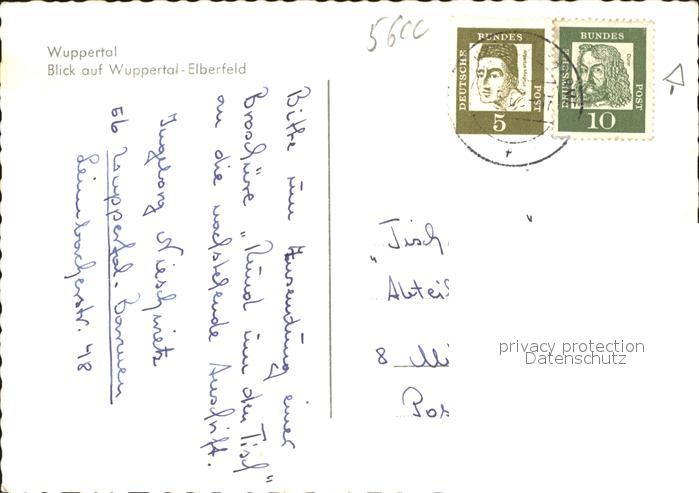 Wuppertal
Blick auf Wuppertal-Elberfeld
5600
DEUTSCHE BUNDES POST
5
DEUTSCHE BUNDES POST
Dürer
10
Bitte um Zusendung einer
Broschüre „Rund um den Tisch"
an die nachstehende Anschrift.
Ingeborg
56 Wuppertal-Barmen
Leimbacherstr. 48
„Tisch
Abteil
8 Mü
Pos
privacy protection
Datenschutz